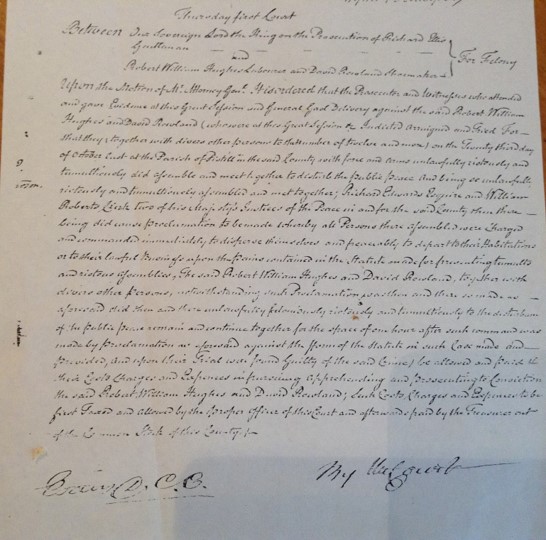 Thursday first Court
Between Our Sovereign Lord the King on the Prosecution of Richard Ellis
Gentleman
and
Robert William Hughes Labourer and David Rowland Shoemaker
For Felony
Upon the Motion of Mr. Attorney Genl. It is ordered that the Prosecutor and Witnesses who attended
and gave Evidence at this Great Session and General Gaol Delivery against the said Robert William
Hughes and David Rowland (who were at this Great Session &c Indicted arraigned and tried For
that they, together with divers other persons to the number of twelve and more) on the Twenty third day
of October last at the Parish of in the said County with force and arms unlawfully riotously and
tumultuously did assemble and meet together to disturb the public peace and being so unlawfully
riotously and tumultuously assembled and met together; Richard Edwards Esquire and William
Roberts Clerk two of his Majesty's Justices of the Peace in and for the said County then there
being did cause Proclamation to be made whereby all Persons there assembled were Charged
and commanded immediately to disperse themselves and peaceably to depart to their Habitations
or to their lawful Business upon the pains contained in the Statute made for preventing tumults
and riotous assemblies, The said Robert William Hughes and David Rowland, together with
divers other Persons, notwithstanding such Proclamation was then and there so made as
aforesaid did then and there unlawfully feloniously riotously and tumultuously to the disturbance
of the public Peace remain and continue together for the space of one hour after such command was
made by Proclamation as aforesaid against the form of the Statute in such Case made and
provided, and upon their Trial were found Guilty of the said Crime) be allowed and paid the
their Costs Charges and Expences in pursuing apprehending and prosecuting to Conviction
the said Robert William Hughes and David Rowland; Such Costs, Charges and Expences to be
first Taxed and allowed by the proper Officer of this Court and afterwards paid by the Treasurer out
of the Common Stock of this County
By the Court
D. C. C.